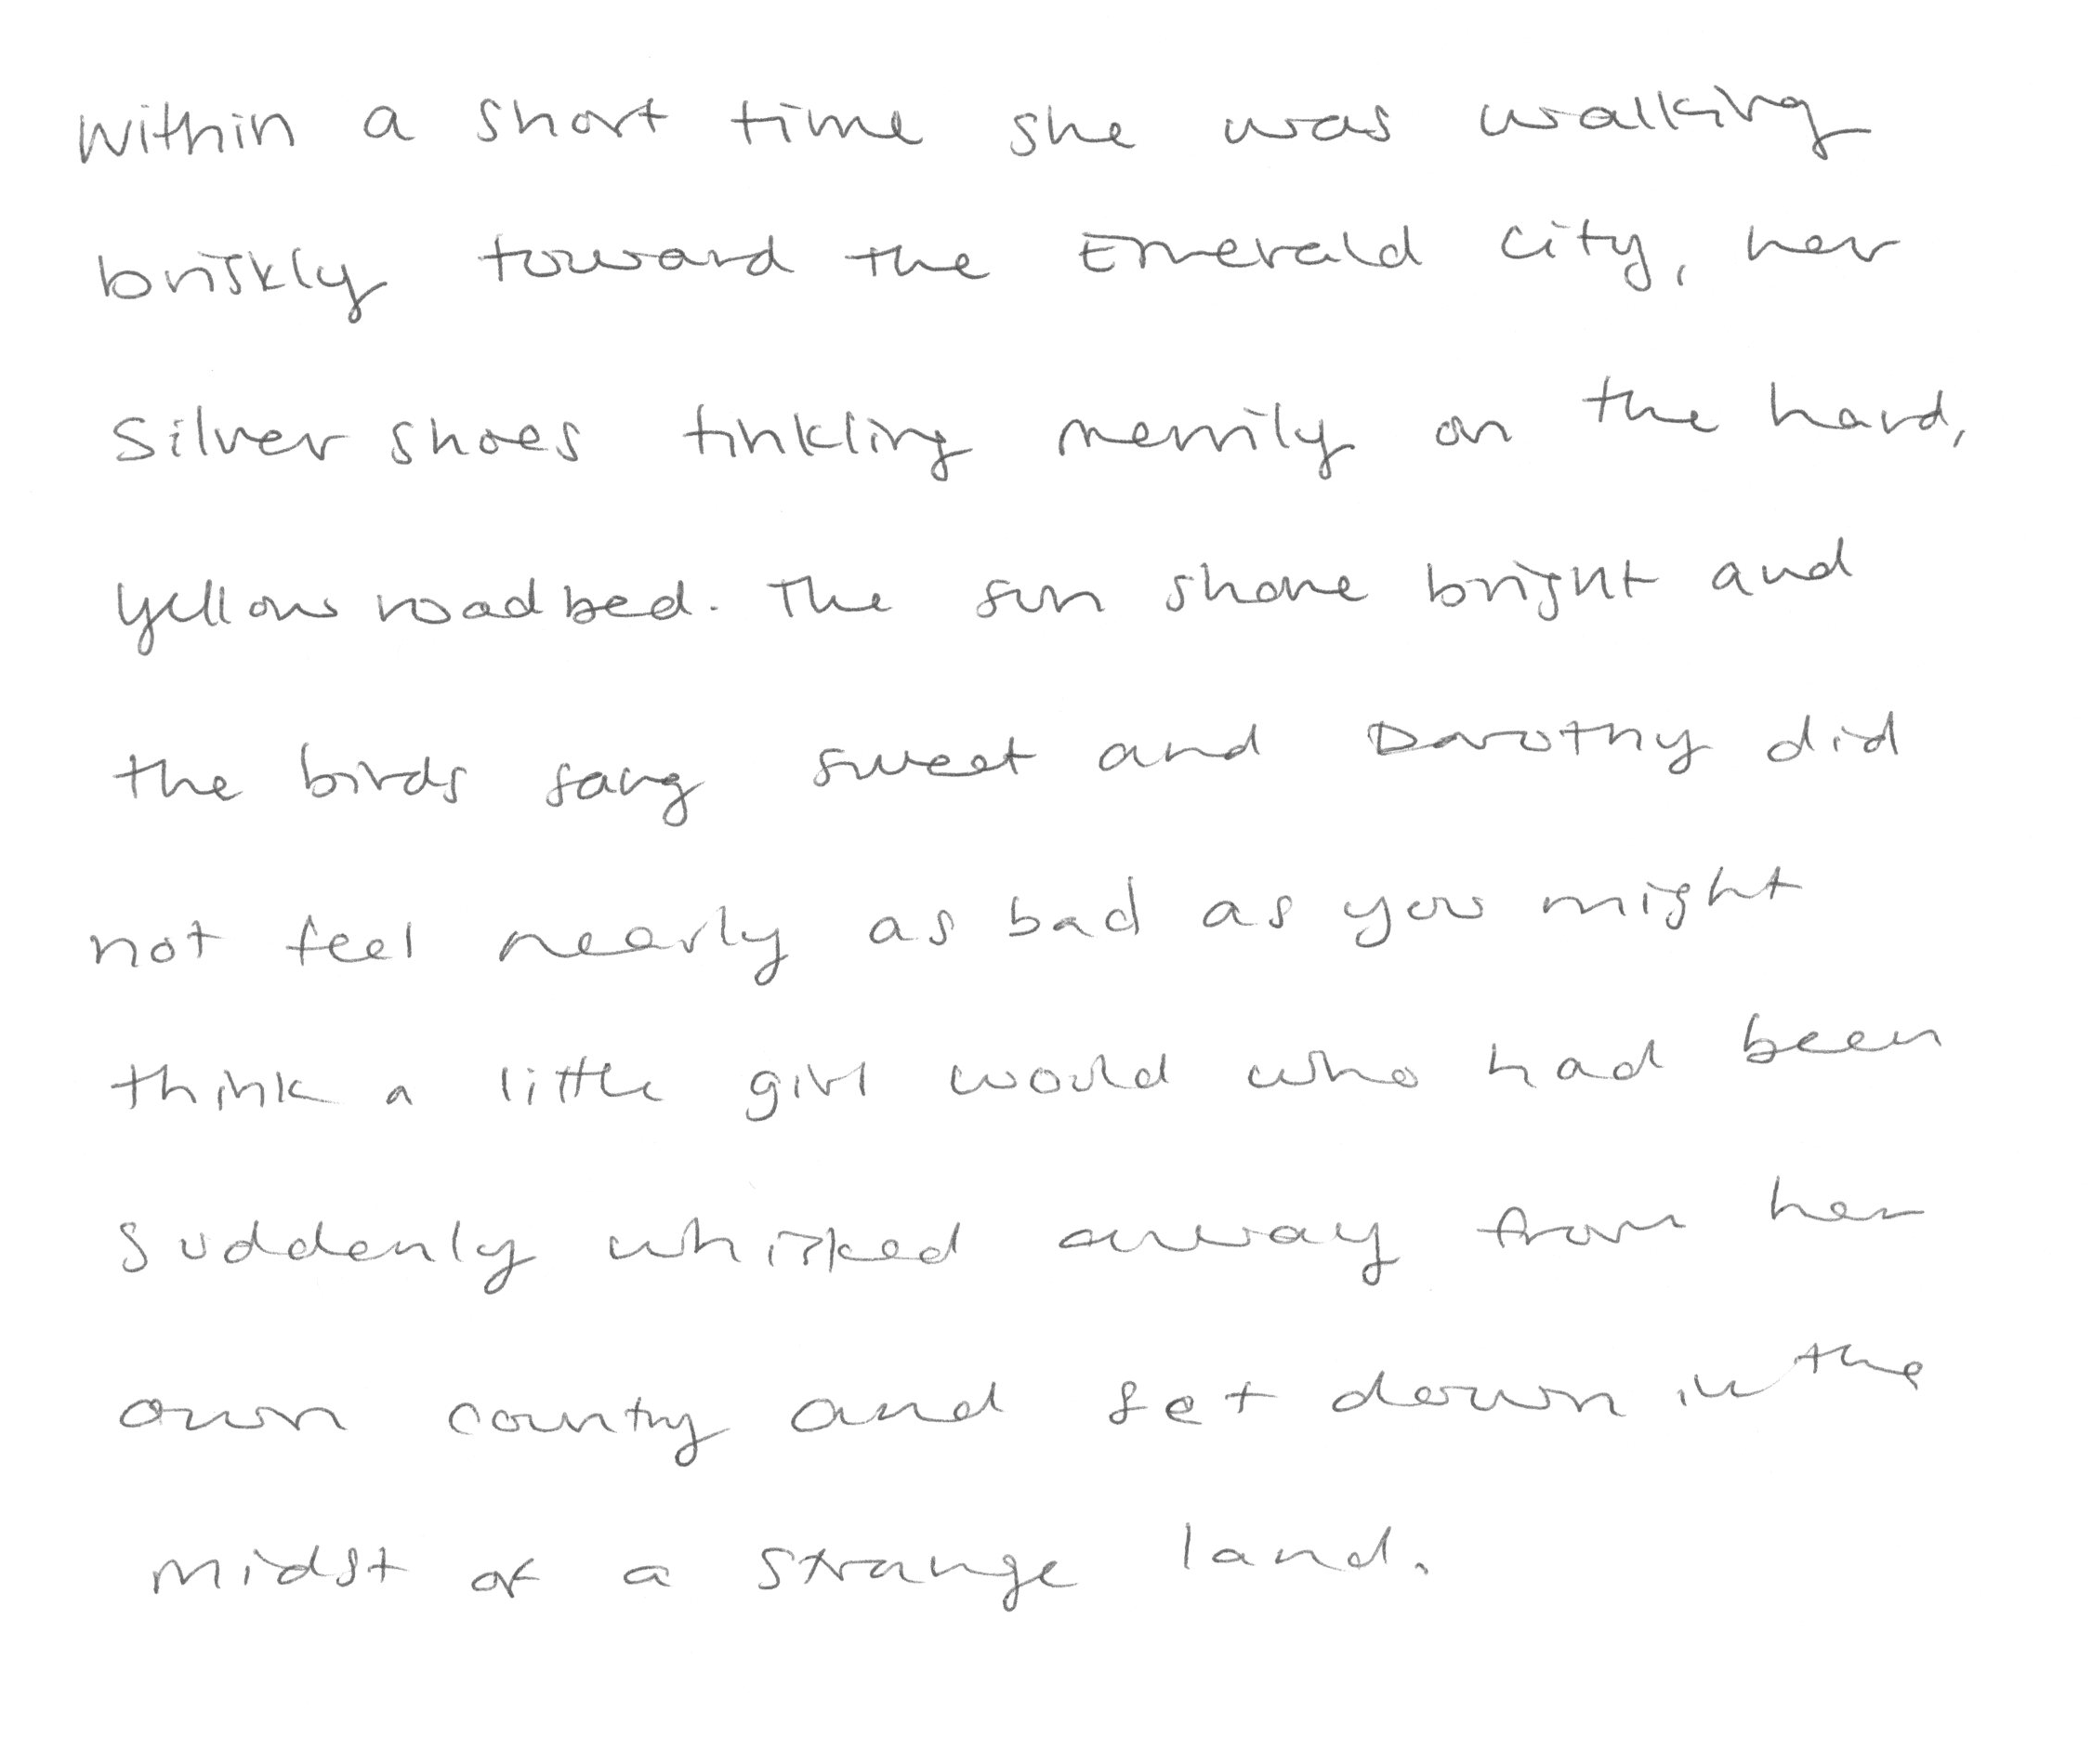 Within a short time she was walking
briskly toward the Emerald City, her
Silver shoes tinkling merrily on the hard,
yellow roadbed. The sun shone bright and
the birds sang sweet and Dorothy did
not feel nearly as bad as you might
think a little girl would who had been
suddenly whisked away from her
own country and set down in the
midst of a strange land.